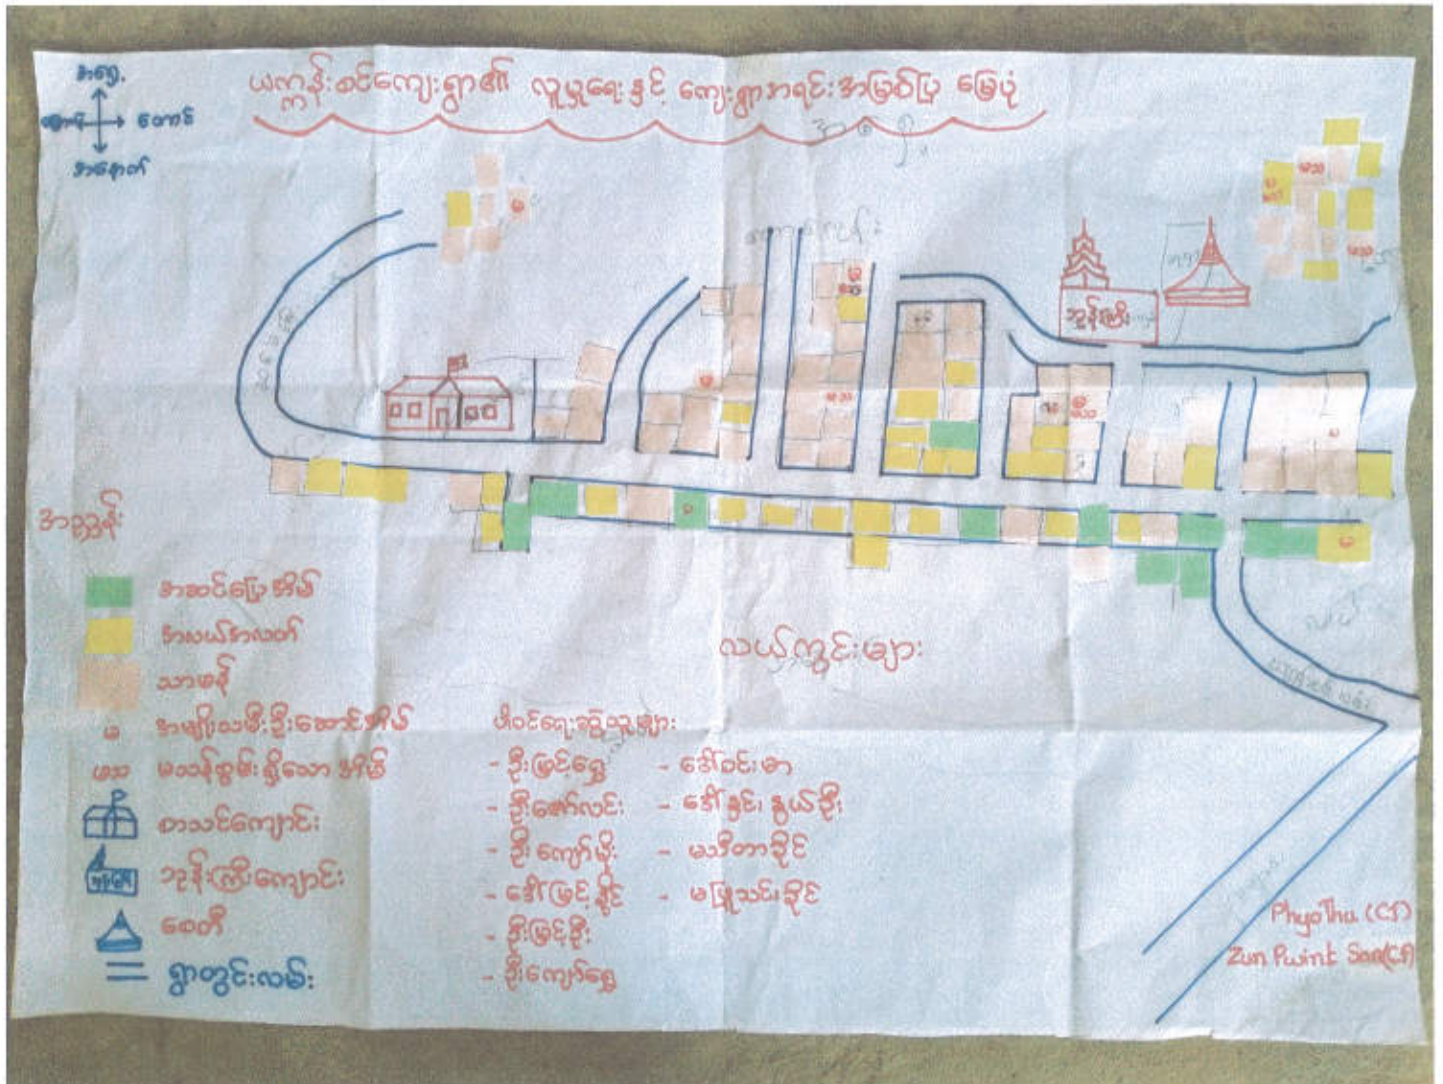 ယက္ကန်းစင်ကျေးရွာ၏ လူမှုရေးနှင့် ကျေးရွာအရင်းအမြစ်ပြ မြေပုံ
အရှေ့
တောင်
အနောက်
ဘုန်းကြီး
မ
မသ
အညွှန်း
အဆင်ပြေအိမ်
အလယ်အလတ်
သာမန်
မ အမျိုးသမီးဦးဆောင်အိမ်
မသ မသန်စွမ်းရှိသောအိမ်
စာသင်ကျောင်း
ဘုန်းကြီးကျောင်း
စေတီ
ရွာတွင်းလမ်း
လယ်ကွင်းများ
ပါဝင်ရေးဆွဲသူများ
- ဦးမြင့်ရွှေ
- ဦးဇော်လင်း
- ဦးကျော်မိုး
- ဒေါ်မြင့်နိုင်
- ဦးမြင့်ဦး
- ဦးကျော်ရွှေ
- ဒေါ်ဝင်းမာ
- ဒေါ်နှင်းနွယ်ဦး
- မသီတာခိုင်
- မဖြူသင်းခိုင်
PhyoThu (CF)
Zun Pwint San(CF)